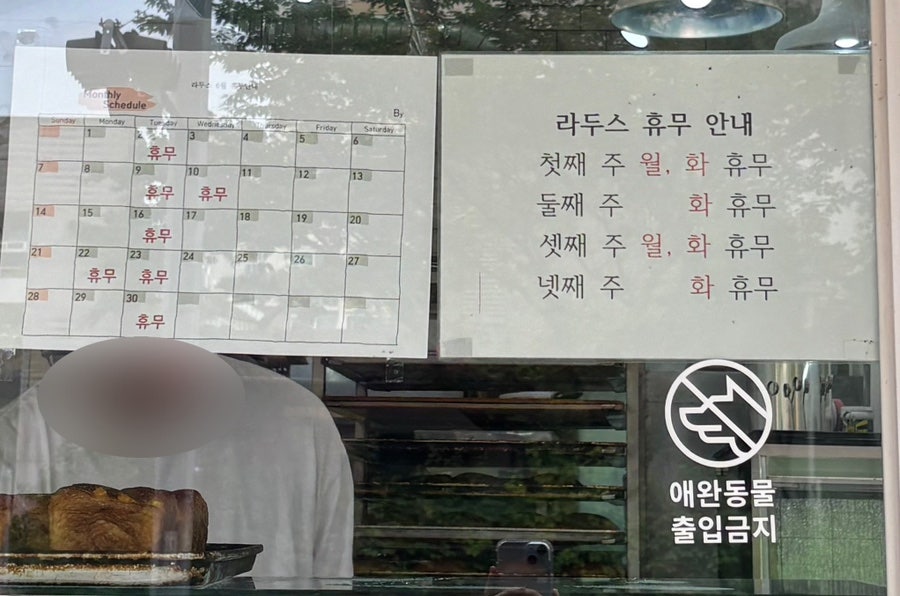 라두스 6월 휴무안내
Monthly
Schedule
By
Sunday Monday Tuesday Wednesday Thursday Friday Saturday
1 2 3 4 5 6
휴무
7 8 9 10 11 12 13
휴무 휴무
14 15 16 17 18 19 20
휴무
21 22 23 24 25 26 27
휴무 휴무
28 29 30
휴무
라두스 휴무 안내
첫째 주 월, 화 휴무
둘째 주 화 휴무
셋째 주 월, 화 휴무
넷째 주 화 휴무
애완동물
출입금지